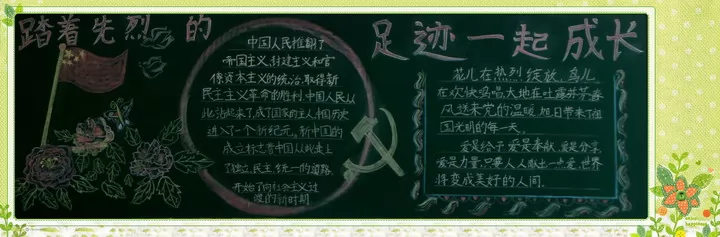 踏着先烈的
足迹一起成长
中国人民推翻了
帝国主义,封建主义和官
僚资本主义的统治,取得新
民主主义革命的胜利,中国人民从
此站起来了,成了国家的主人,中国历史
进入了一个新纪元。新中国的
成立标志着中国人从此走上
了独立,民主,统一的道路,
开始了向社会主义过
渡的新时期
花儿在热烈绽放,鸟儿
在欢快鸣唱,大地在吐露芬芳,春
风送来党的温暖,旭日带来了祖
国光明的每一天。
爱是给予,爱是奉献,爱是分享,
爱是力量,只要人人献出一点爱,世界
将变成美好的人间。